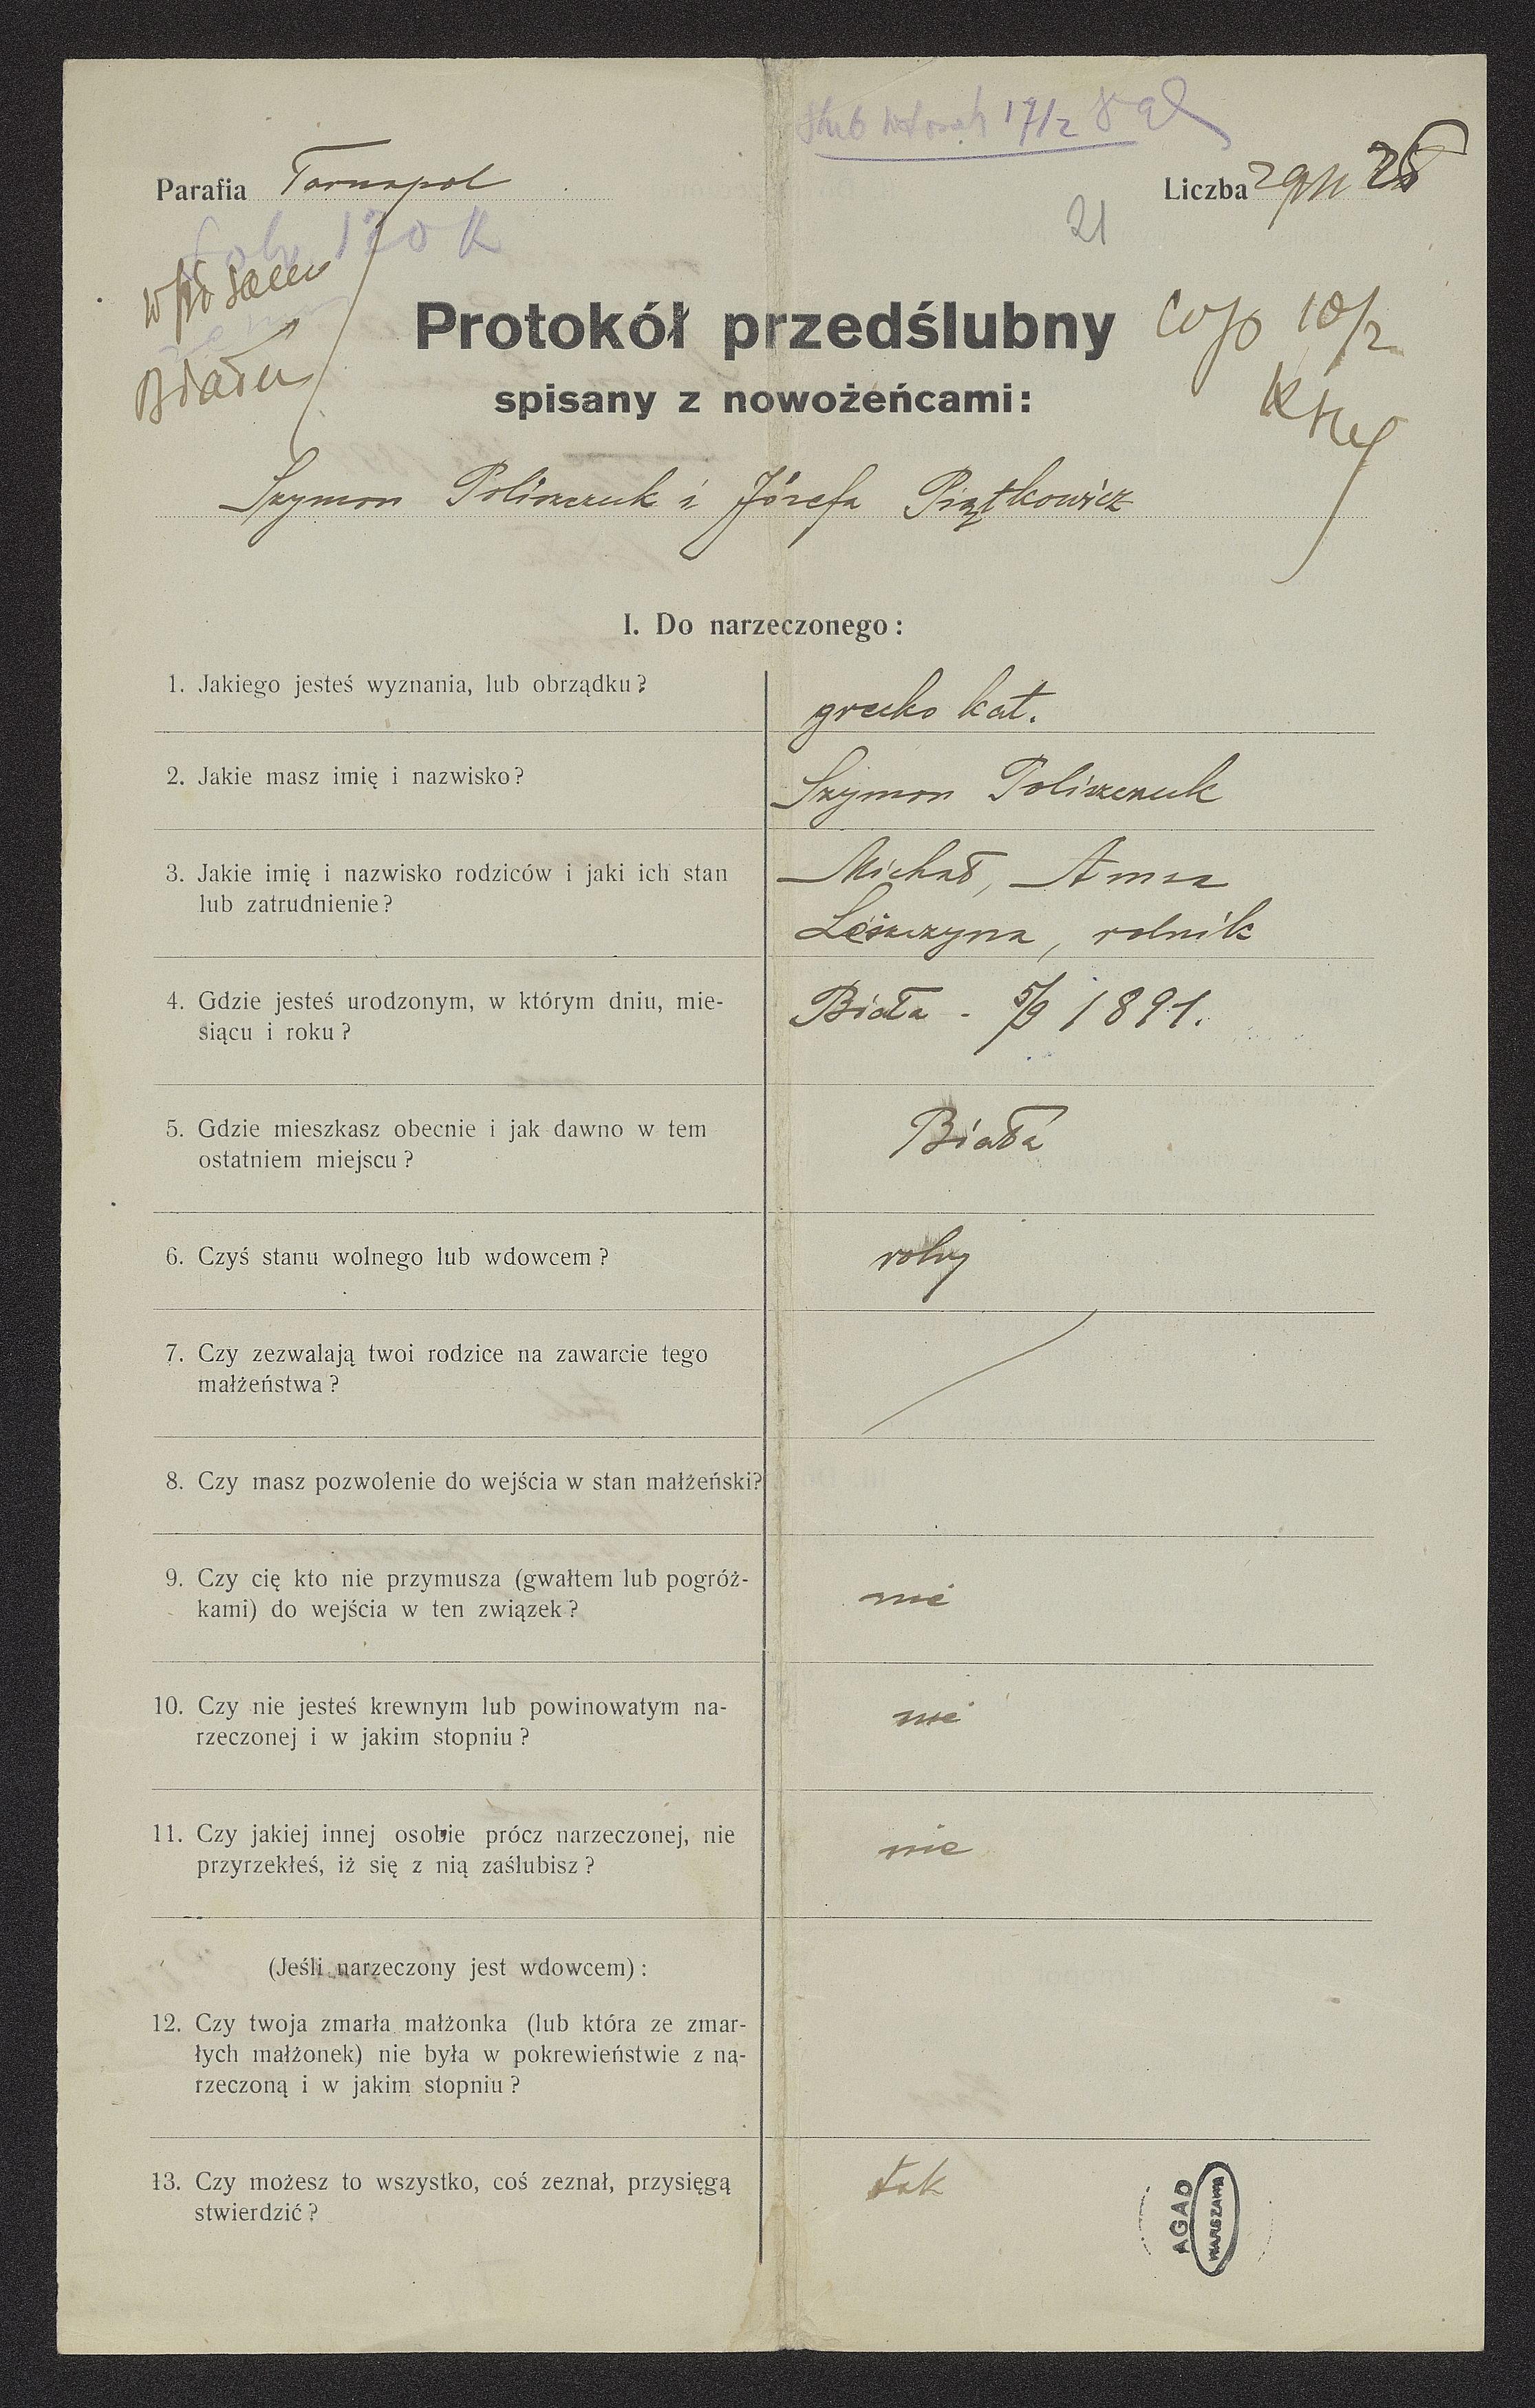 17/2
Parafia Tarnopol
Liczba
120 K
21
Protokół przedślubny
10/2
spisany z nowożeńcami:
Szymon Poliszczuk i Józefa Piątkowicz
I. Do narzeczonego:
1. Jakiego jesteś wyznania, lub obrządku?
grecko kat.
2. Jakie masz imię i nazwisko?
Szymon Poliszczuk
3. Jakie imię i nazwisko rodziców i jaki ich stan
Michał, Anna
lub zatrudnienie?
rolnik
4. Gdzie jesteś urodzonym, w którym dniu, mie-
Biała - 5/9 1891.
siącu i roku?
5. Gdzie mieszkasz obecnie i jak dawno w tem
Biała
ostatniem miejscu?
6. Czyś stanu wolnego lub wdowcem?
wolny
7. Czy zezwalają twoi rodzice na zawarcie tego
małżeństwa?
8. Czy masz pozwolenie do wejścia w stan małżeński?
9. Czy cię kto nie przymusza (gwałtem lub pogróż-
nie
kami) do wejścia w ten związek?
10. Czy nie jesteś krewnym lub powinowatym na-
nie
rzeczonej i w jakim stopniu?
11. Czy jakiej innej osobie prócz narzeczonej, nie
nie
przyrzekłeś, iż się z nią zaślubisz?
(Jeśli narzeczony jest wdowcem):
12. Czy twoja zmarła małżonka (lub która ze zmar-
łych małżonek) nie była w pokrewieństwie z na-
rzeczoną i w jakim stopniu?
13. Czy możesz to wszystko, coś zeznał, przysięgą
tak
stwierdzić?
AGAD
WARSZAWA